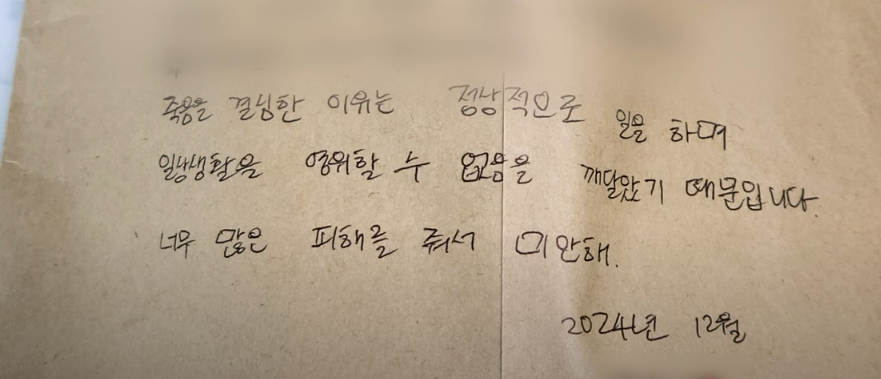 죽음을 결심한 이유는 정상적으로 일을 하며
일상생활을 영위할 수 없음을 깨달았기 때문입니다.
너무 많은 피해를 줘서 미안해.
2024년 12월